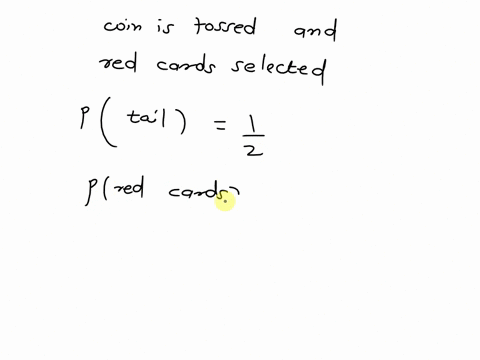 coin is tossed and
red cards selected
P( tail) = 1/2
P(red cards)